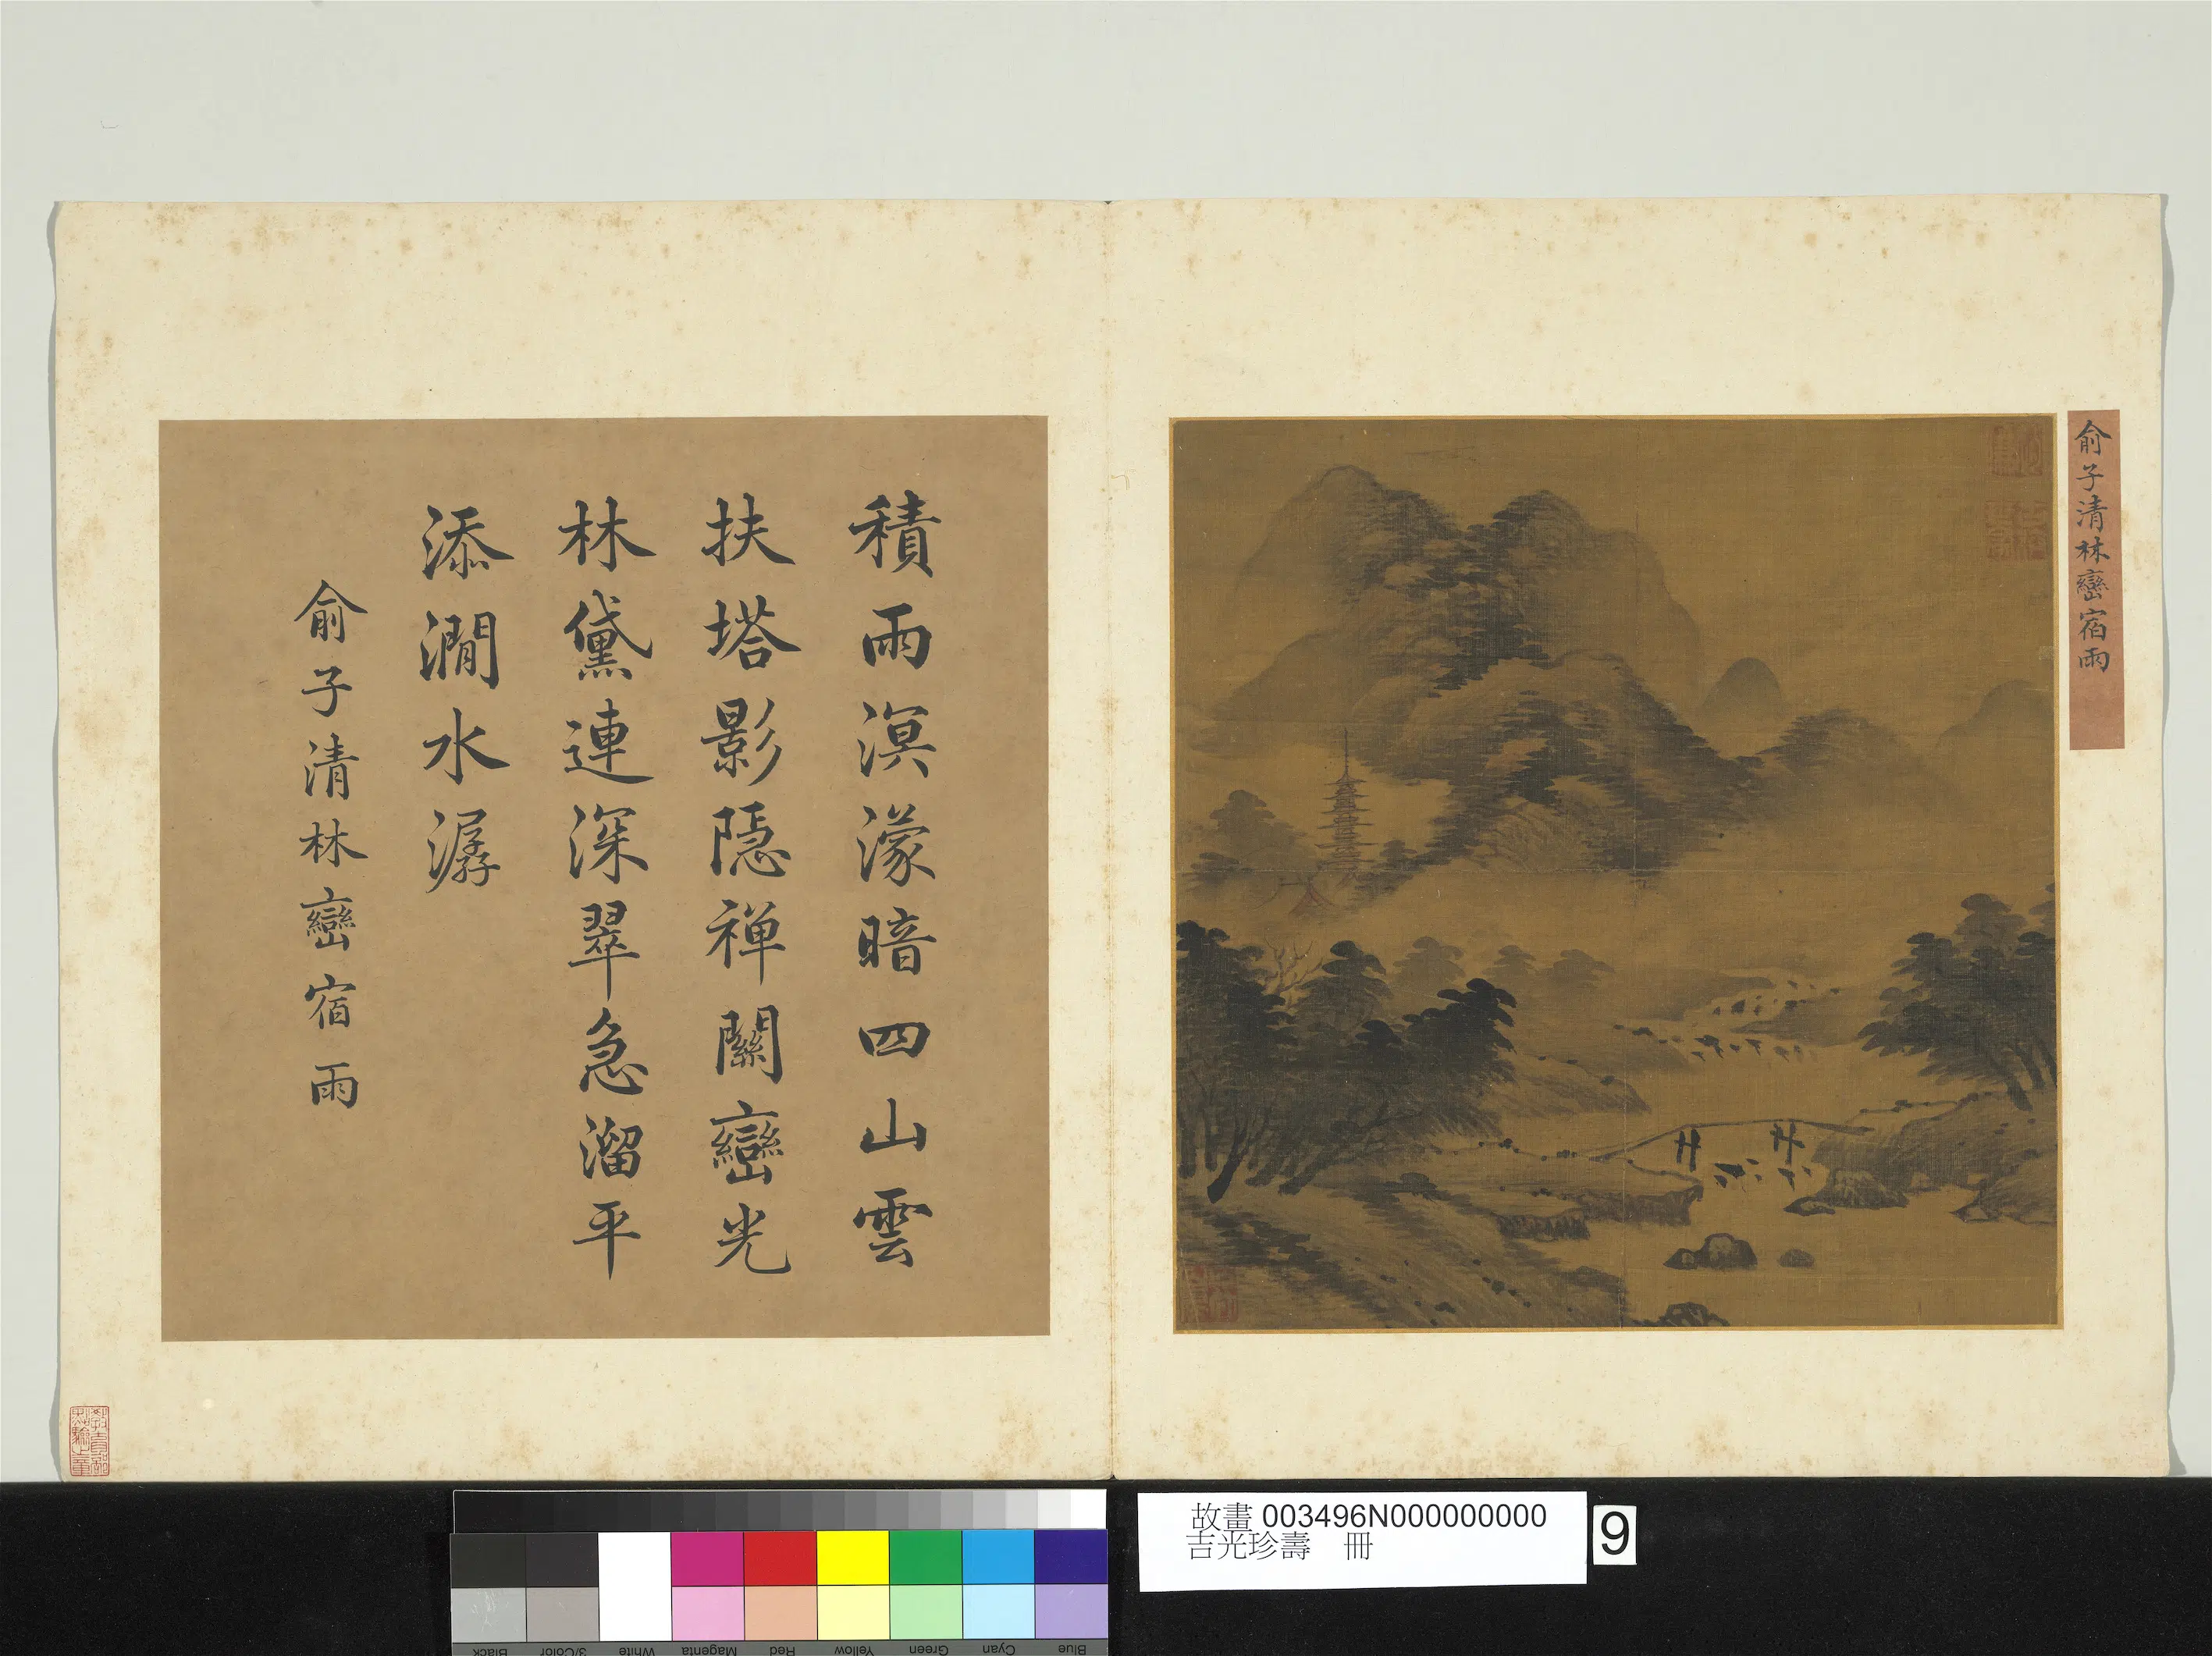 俞子清林巒宿雨
積雨溟濛暗四山雲
扶塔影隱禅關巒光
林黛連深翠急溜平
添澗水潺
俞子清林巒宿雨
故畫 003496N000000000
吉光珍壽 冊
9
Black
3/Color
White
Magenta
Red
Yellow
Green
Cyan
Blue